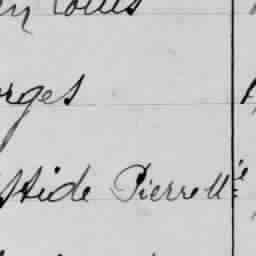 Louis
rges
stide Pierrell